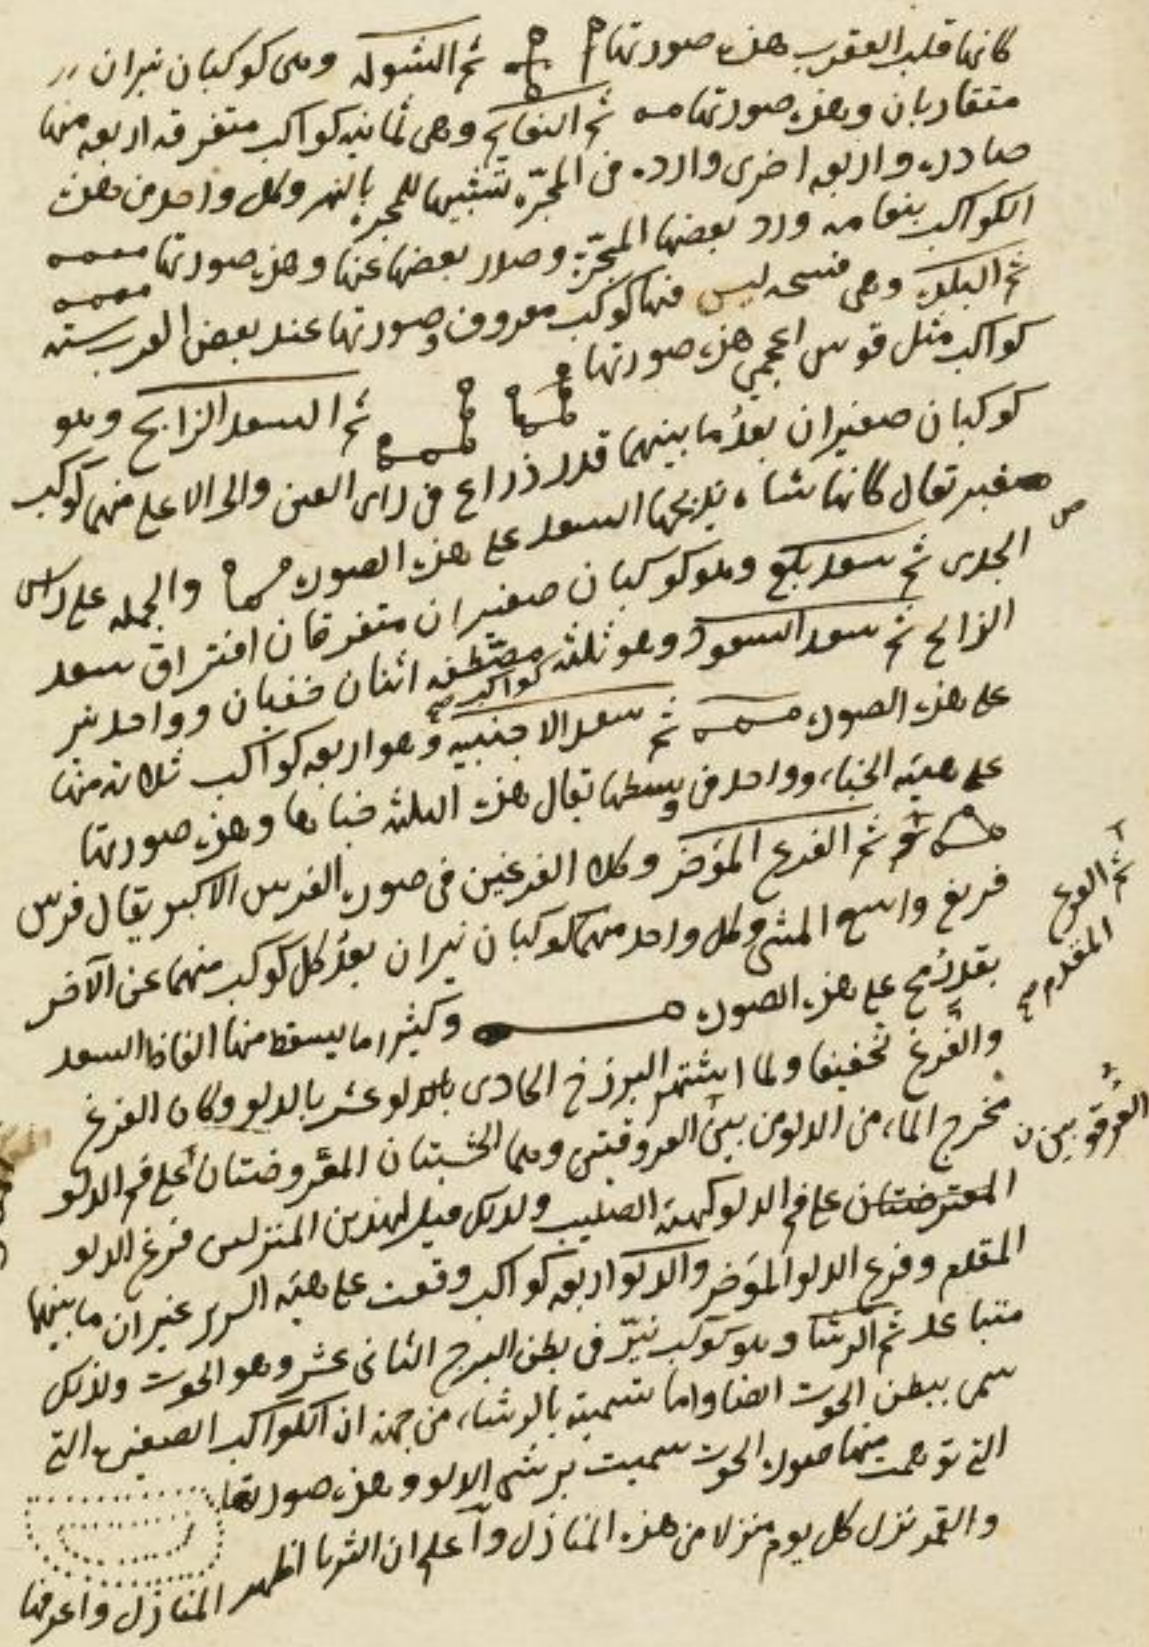 كانها قلب العقرب هذه صورتها ثم الشوله وهى كوكبان نيران
متقاربان وهذه صورتها ثم النعايم وهى ثمانيه كواكب متفرقه اربعه منها
صادره واربعه اخرى وارده فى المجرّه تشبيها للمجره بالنهر وكل واحد من هذه
الكواكب بنعامه ورد بعضها المجرّة وصدر بعضها عنها وهذه صورتها
ثم البلده وهى فسحه ليس فيها كوكب معروف وصورتها عند بعض العرب سته
كواكب مثل قوس اعجمى هذه صورتها
ثم السعد الزابح وهو
كوكبان صغيران بعدُ ما بينهما قدر ذراع فى راى العين والى الاعلى منهما كوكب
صغير تقال كانها شاه يذبحها السعد على هذه الصوره والجمله على راس
الجدى ثم سعد بلع وهو كوكبان صغيران متفرقان افتراق سعد
الزابح ثم سعد السعود وهو ثلثه كواكب اثنان خفيان وواحد نير
على هذه الصوره ثم سعد الاخبيه وهو اربعه كواكب ثلاثه منها
على هيئه الخباء وواحد فى وسطها يقال هذه الثلثه خباءها وهذه صورتها
ثم الفرغ المؤخر وكلا الفرغين فى صوره الفرس الاكبر يقال فرس
ثم الفرغ
المقدم صح
فريغ واسع المشى وكل واحد منهما كوكبان نيران بعدُ كل كوكب منهما عن الآخر
بقدر رمح على هذه الصوره وكثيرا ما يسقط منها الفاظ السعد
والفرغ تخفيفا ولما اشتهر البرج الحادى عشر بالدلو وكان الفرغ
مخرج الماء من الدلو من بين العرقوتين وهما الخشبتان المعروضتان على فم الدلو
على فم الدلو كهيئه الصليب ولذلك قيل لهذين المنزلين فرغ الدلو
المقدم وفرغ الدلو المؤخر والدلو اربعه كواكب وقعت على هيئه السرير غير ان ما بينها
متباعد ثم الرشا وهو كوكب نيّر فى بطن البرج الثانى عشر وهو الحوت ولذلك
سمى ببطن الحوت ايضا واما تسميته بالرشاء من جهة ان الكواكب الصغيره التى
التى توهمت منها صوره الحوت سميت برشى الدلو وهذه صورتها
والقمر ينزل كل يوم منزلا من هذه المنازل وأعلم ان الثريا اظهر المنازل واعرفها